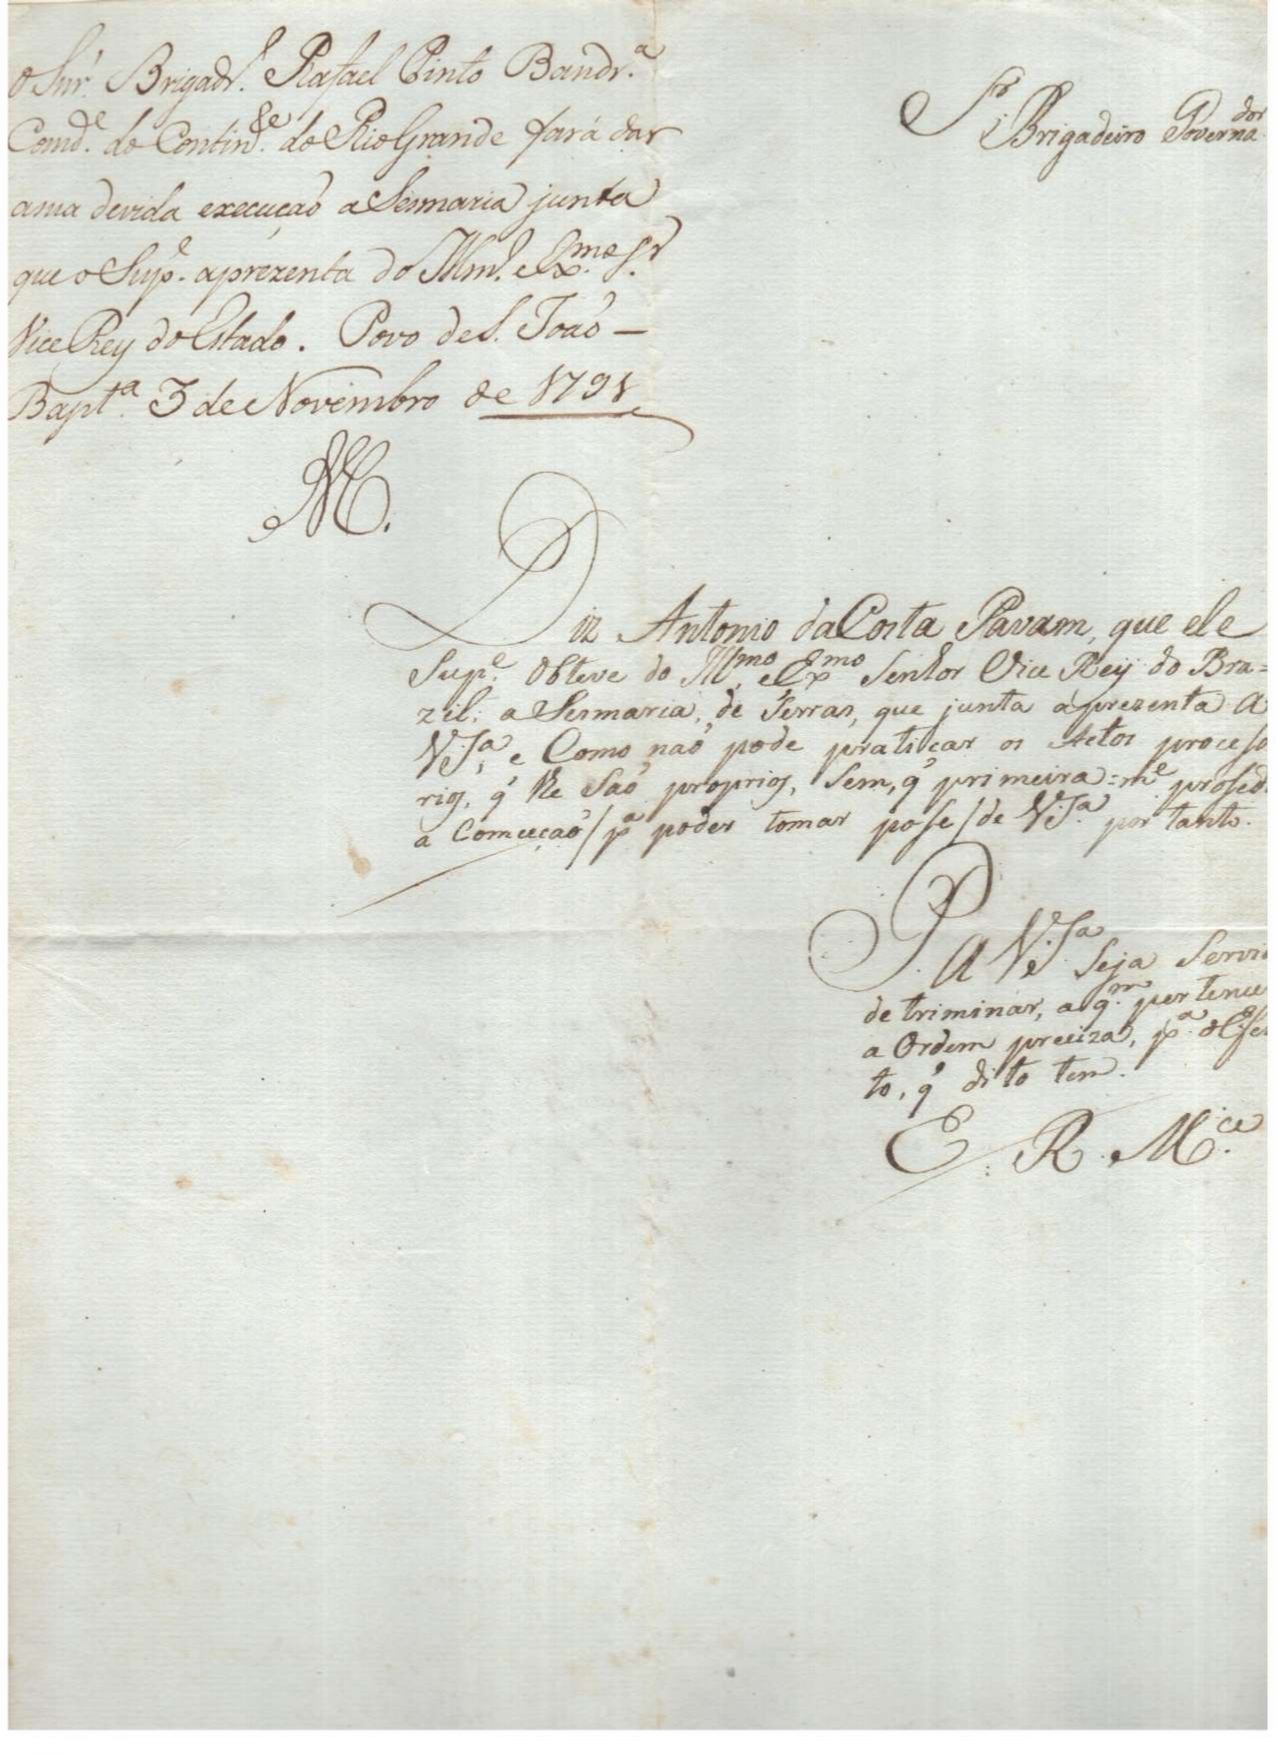 O Snr. Brigadr. Rafael Pinto Bandr.ª
Comd.e do Contin.te do Rio Grande fará dar
a sua devida execução a Sesmaria junta
que o Sup.e aprezenta do Illm.º e Ex.mo S.r
Vice Rey do Estado. Povo de S. João –
Bapt.ª 3 de Novembro de 1791
Sr. Brigadeiro Governa.dor
Diz Antonio da Costa Pavam, que ele
Sup.e Obteve do Ill.mo e Ex.mo Senhor Vice Rey do Bra=
zil; a Sesmaria, de Terras, que junta aprezenta a
V.Sª, e Como naõ pode praticar os Actos proceso
rios, q' lhe Saõ proprios, Sem, q' primeira=m.e prosed.
a Comcução / p.ª poder tomar pose / de V.Sª por tanto.
P. A V.Sª Seja Servi
de triminar, a q.m pertence
a Ordem preciza, p.ª o Efei
to, q' dito tem.
E. R. M.ce